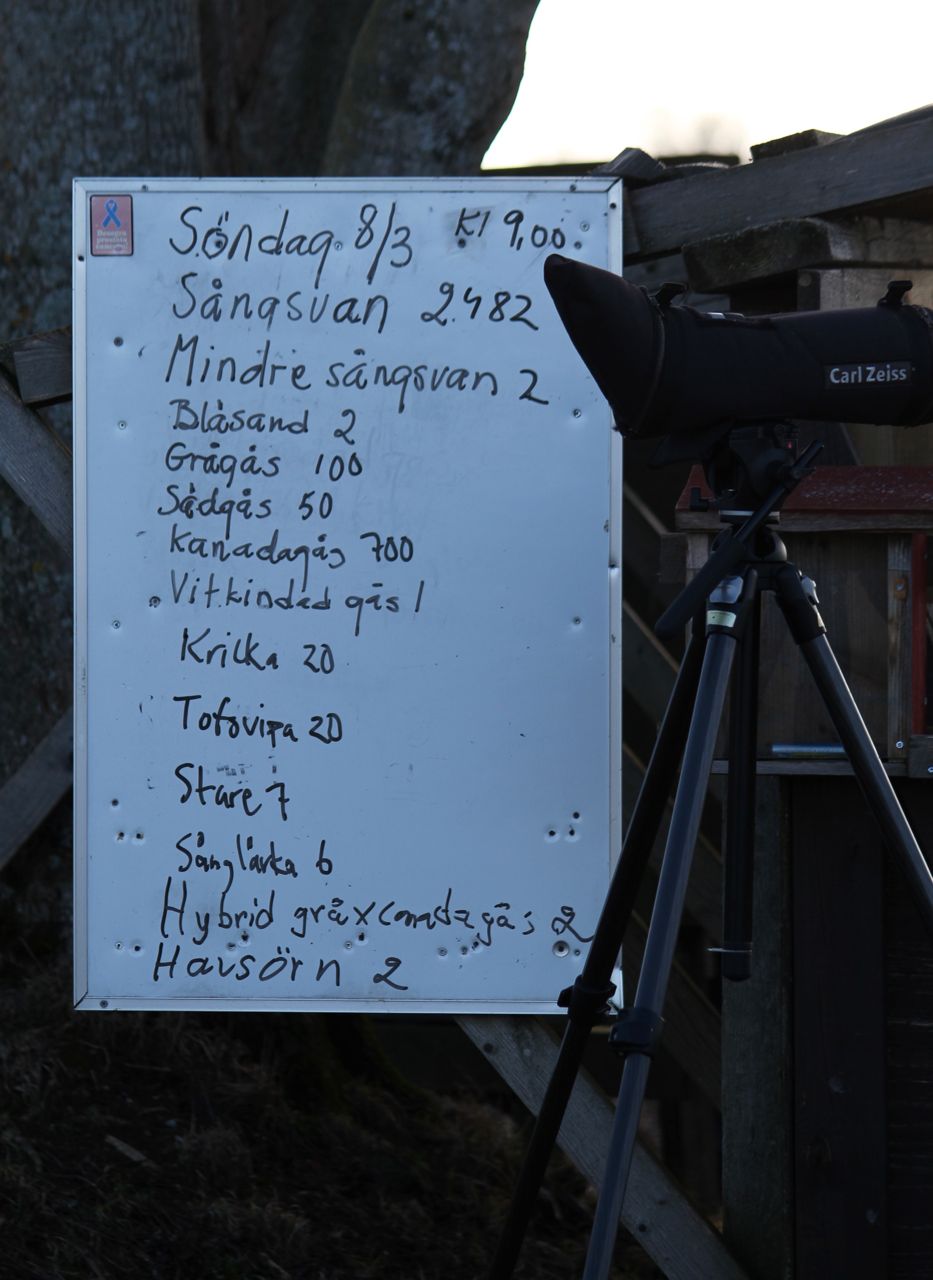 Söndag 8/3 Kl 9,00
Sångsvan 2.482
Mindre sångsvan 2
Carl Zeiss
Blåsand 2
Grågås 100
Sädgås 50
Kanadagås 700
Vitkindad gås 1
Kricka 20
Tofsvipa 20
Stare 7
Sånglärka 6
Hybrid grå x canadagås 2
Havsörn 2